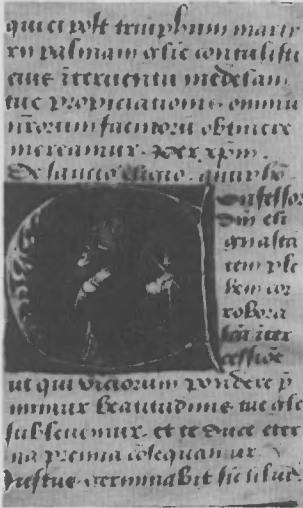 qui ei post triumphum martir
rii palmam glorie contulisti
eius interventu medelam
tue propiciationis omniu
nrorum facinorū obtinere
mereamur. per xpm.
De sancto eligio.
Confessor
dni eli
gi
tem ple
bem cor
robora
scā inter
cessiōe
ut qui viciorum pondere p
mimur beatitudinis tue gle
sublevemur. et te duce eter
na premia cōsequamur.
Justus germinabit sicut lilium.